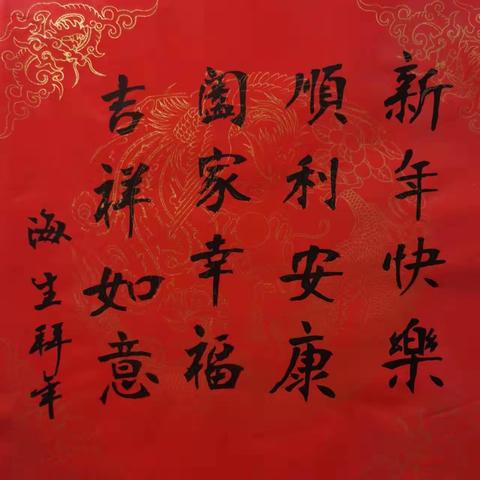 新年快樂
順利安康
闔家幸福
吉祥如意
海生拜年